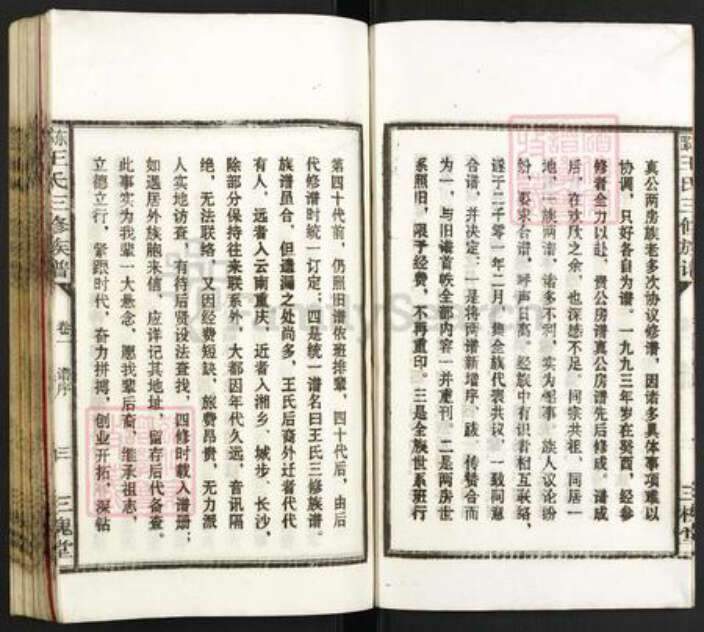 真公两房族老多次协议修谱，因诸多具体事项难以
协调，只好各自为谱。一九九三年岁在癸酉，经参
修者全力以赴，贵公房谱真公房谱先后修成。谱成
后，在欢欣之余，也深感不足。同宗共祖、同居一
地，一族两谱，诸多不利，实为憾事，族人议论纷
纷，要求合谱，呼声日高。经族中有识者相互联络，
遂于二千零一年二月，集全族代表共议，一致同意
合谱，并决定：一是将两谱新增序、跋、传赞合而
为一，与旧谱首帙全部内容一并重刊。二是两房世
系照旧，限于经费，不再重印。三是全族世系班行
王氏三修族谱
三槐堂
第四十代前，仍照旧谱依班排辈，四十代后，由后
代修谱时统一订定；四是统一谱名曰王氏三修族谱。
族谱虽合，但遗漏之处尚多，王氏后裔外迁者代代
有人，远者入云南重庆，近者入湘乡、城步、长沙，
除部分保持往来联系外，大都因年代久远，音讯隔
绝，无法联络，又因经费短缺，旅费昂贵，无力派
人实地访查，有待后贤设法查找，四修时载入谱册；
如遇居外族胞来信，应详记其地址，留存后代备查。
此事实为我辈一大悬念，愿我辈后裔，继承祖志，
立德立行，紧跟时代，奋力拼搏，创业开拓，深钻
王氏三修族谱
卷一
谱序
三
三槐堂
FamilySearch